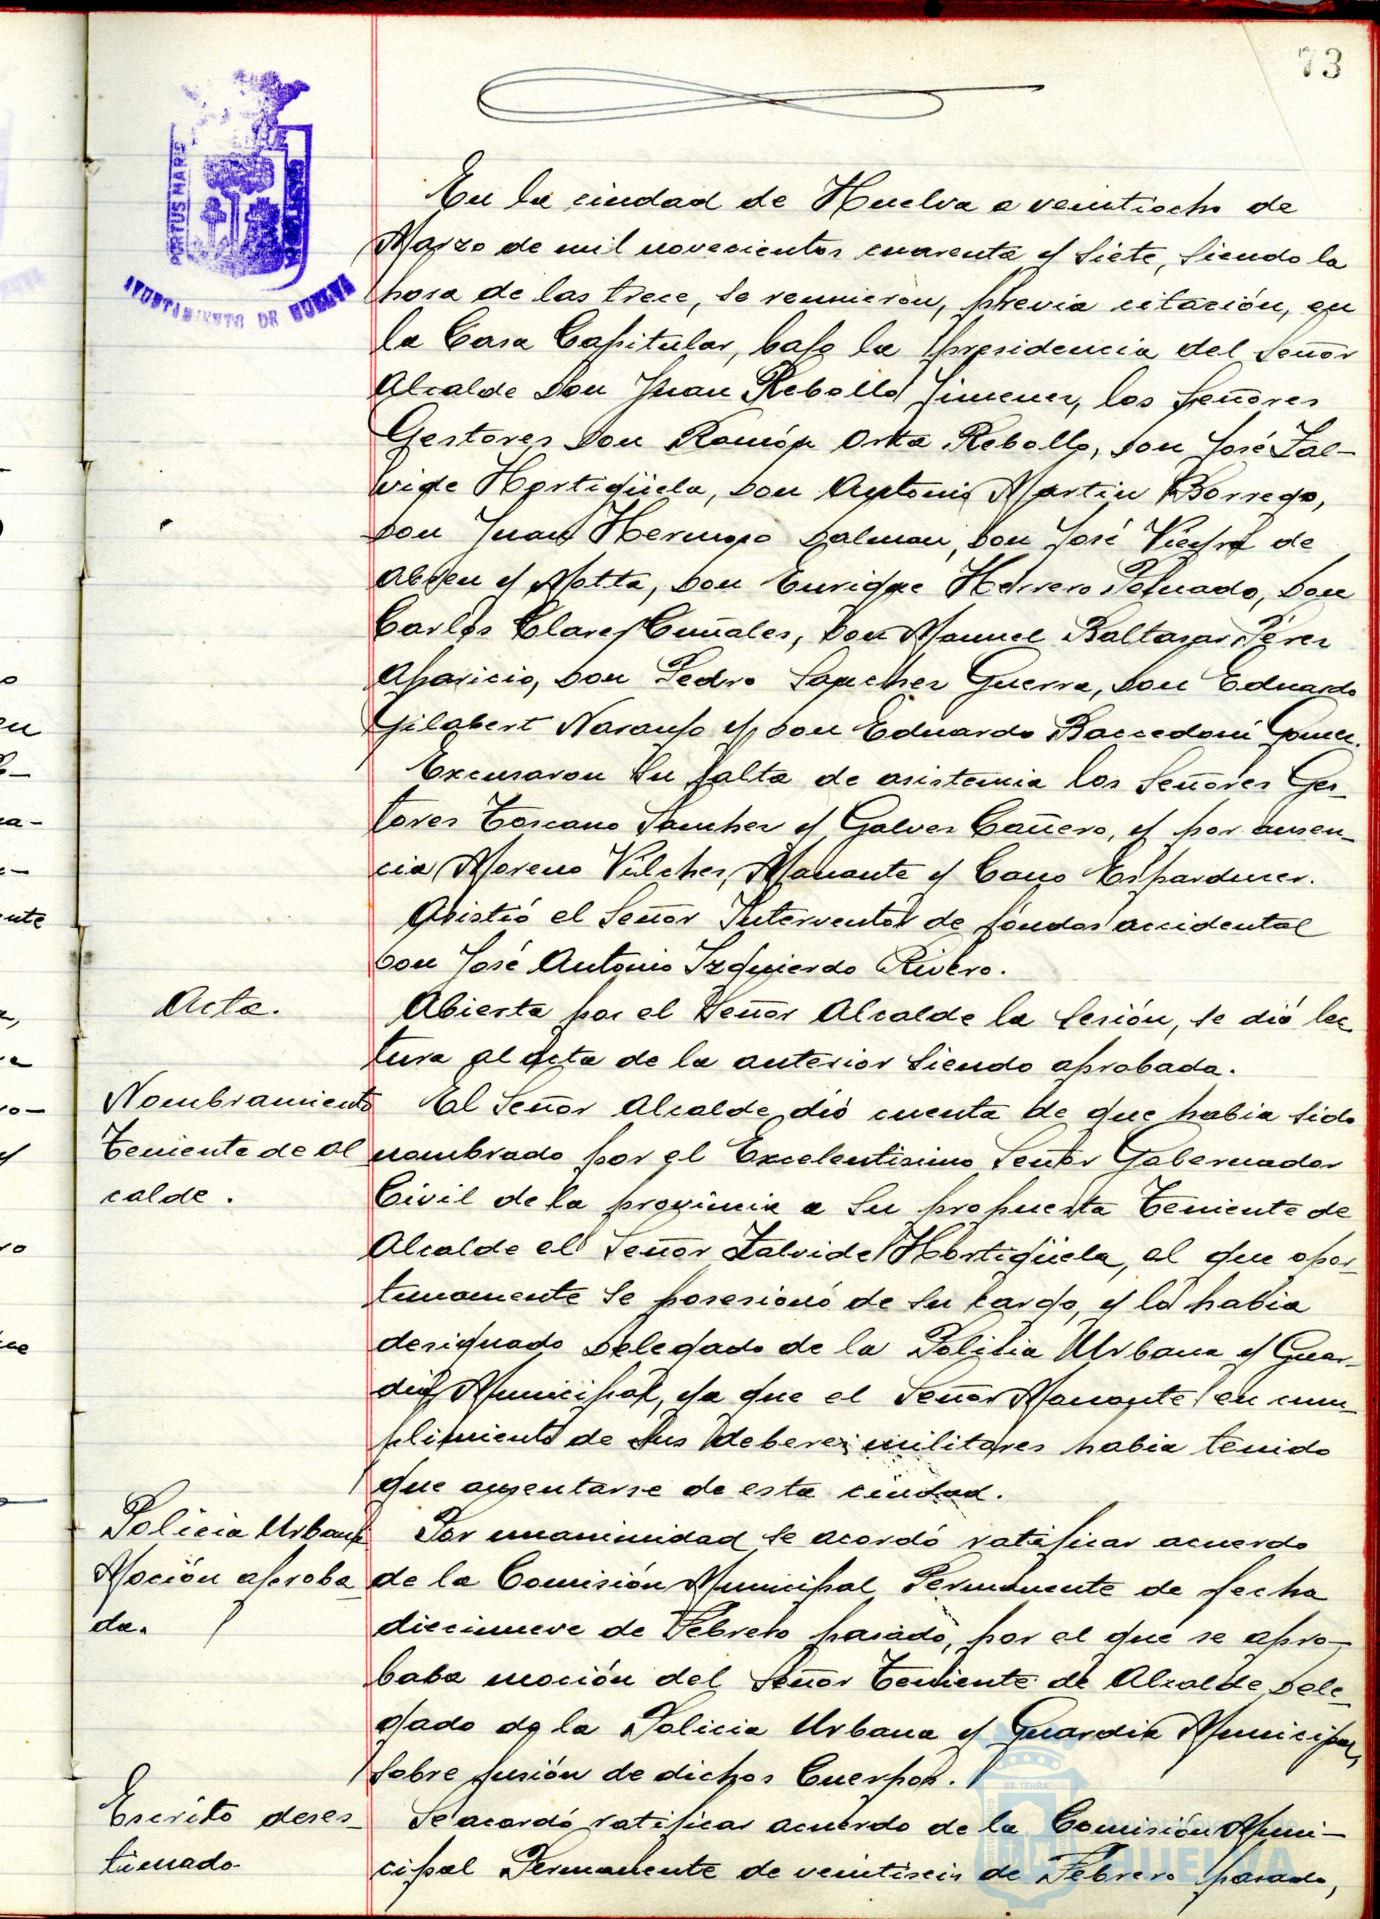 73
PORTUS MARIS
AYUNTAMIENTO DE HUELVA
En la ciudad de Huelva a veintiocho de
Marzo de mil novecientos cuarenta y siete, siendo la
hora de las trece, se reunieron, previa citación, en
la Casa Capitular, bajo la presidencia del Señor
Alcalde Don Juan Rebollo Jimenez, los Señores
Gestores Don Ramón Orta Rebollo, Don José Zal-
vide Hortigüela, Don Antonio Martin Borrego,
Don Juan Hermoso Dalmau, Don José Vieyra de
Abreu y Motta, Don Enrique Herrero Peinado, Don
Carlos Clarey Cuñales, Don Manuel Baltasar Pérez
Aparicio, Don Pedro Sanchez Guerra, Don Eduardo
Gilabert Naranjo y Don Eduardo Baccedoni Gomez.
Excusaron su falta de asistencia los Señores Ges-
tores Toscano Sanchez y Galvez Cañero, y por ausen-
cia Moreno Vilchez, Manante y Cano Esparducer.
Asistió el Señor Interventor de fóndos accidental
Don José Antonio Izquierdo Rivero.
Acta.
Abierta por el Señor Alcalde la sesión, se dió lec
tura al acta de la anterior siendo aprobada.
Nombramiento
Teniente de Al
calde.
El Señor Alcalde dió cuenta de que habia sido
nombrado por el Excelentisimo Señor Gobernador
Civil de la provincia a su propuesta Teniente de
Alcalde el Señor Zalvide Hortigüela, al que opor-
tunamente se posesionó de su cargo, y lo habia
designado Delegado de la Policia Urbana y Guar-
dia Municipal, ya que el Señor Manante en cum-
plimiento de sus deberes militares habia tenido
que ausentarse de esta ciudad.
Policia Urbana
Moción aproba
da.
Por unanimidad se acordó ratificar acuerdo
de la Comisión Municipal Permanente de fecha
diecinueve de Febrero pasado, por el que se apro-
baba moción del Señor Teniente de Alcalde Dele-
gado de la Policia Urbana y Guardia Municipal,
sobre fusión de dichos Cuerpos.
Escrito deses-
timado
Se acordó ratificar acuerdo de la Comisión Muni-
cipal Permanente de veintiseis de Febrero pasado,
HUELVA